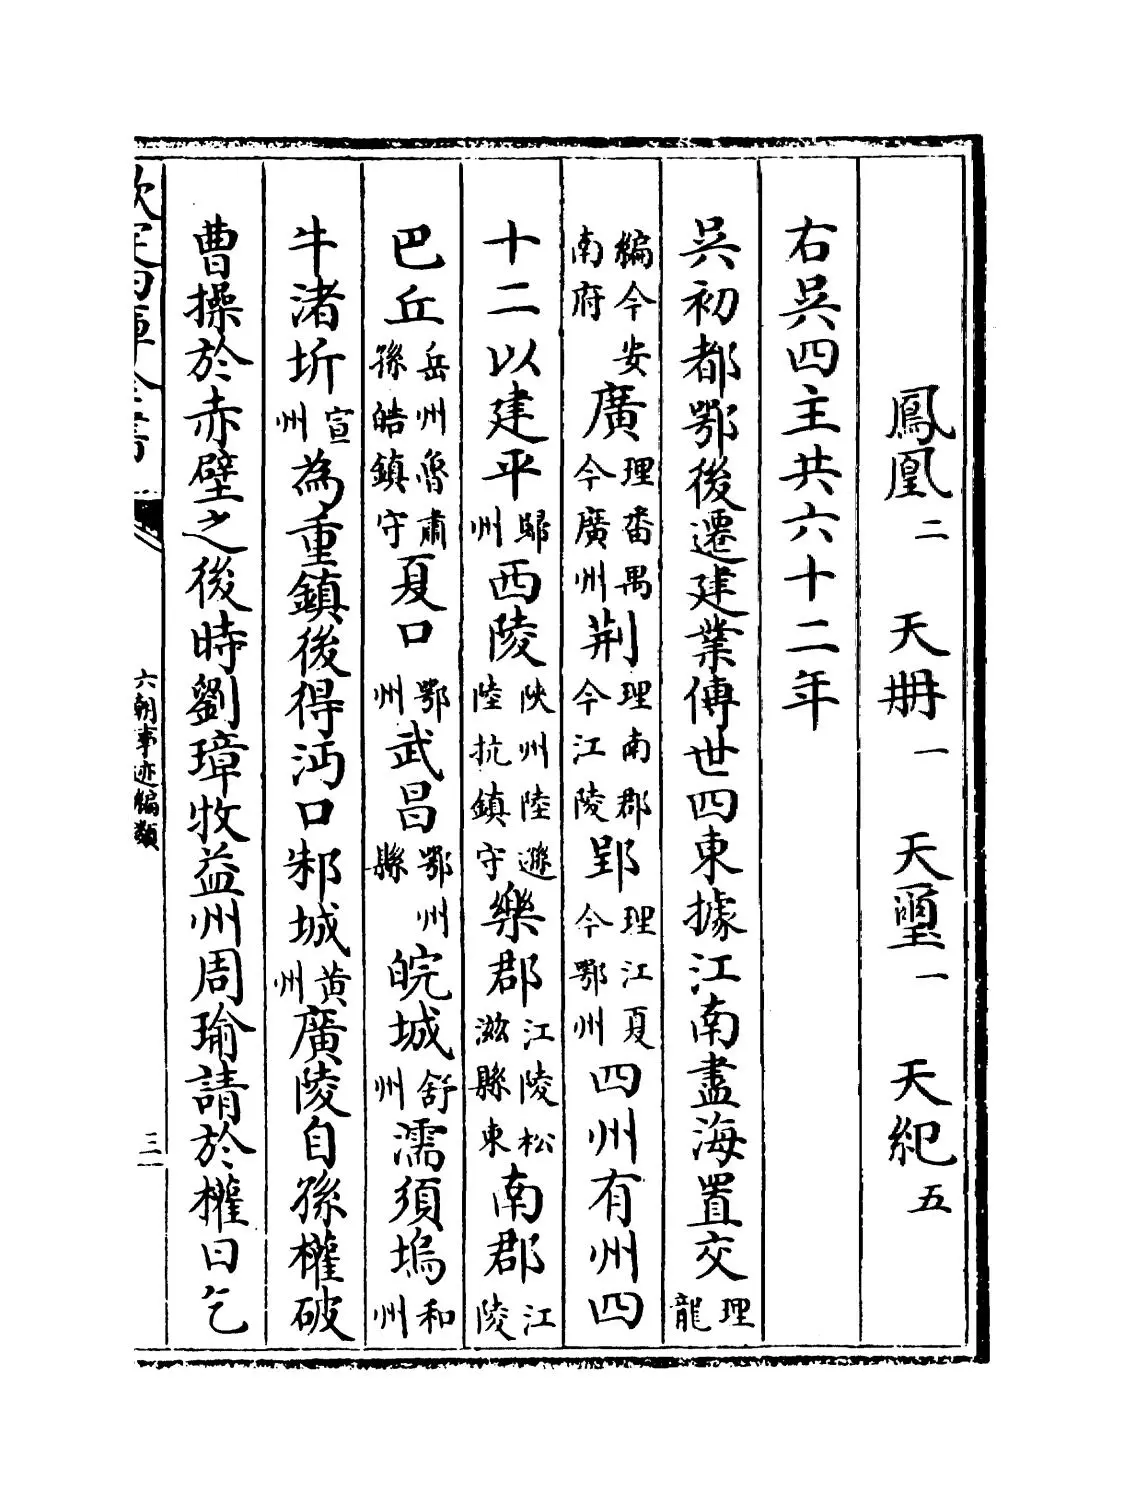 鳳凰二　天冊一　天璽一　天紀五
右吳四主共六十二年
吳初都鄂後遷建業傳世四東據江南盡海置交理龍
編今安南府廣理番禺今廣州荆理南郡今江陵郢理江夏今鄂州四州有州四
十二以建平歸州西陵陜州陸遜陸抗鎮守樂郡江陵松滋縣東南郡江陵
巴丘岳州魯肅孫皓鎮守夏口鄂州武昌鄂州縣皖城舒州濡須塢和州
牛渚圻宣州為重鎮後得沔口邾城黃州廣陵自孫權破
曹操於赤壁之後時劉璋牧益州周瑜請於權曰乞
欽定四庫全書
六朝事迹編類
三